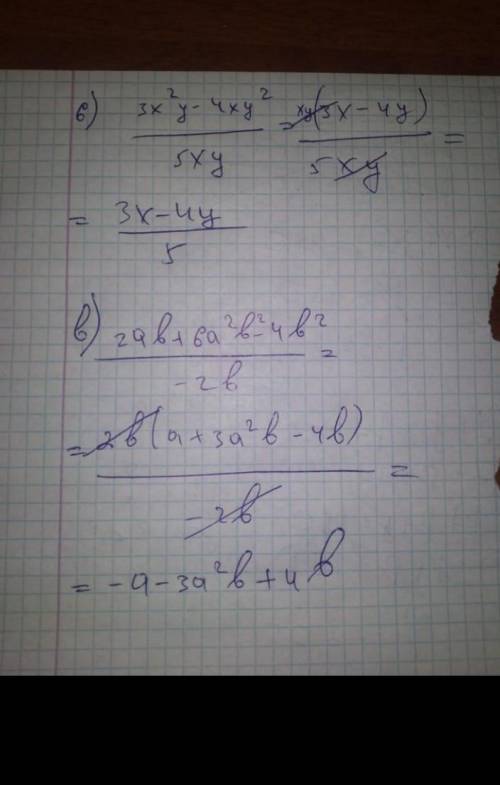 б) (3x²y-4xy²)/(5xy) = (xy(3x-4y))/(5xy) =
= (3x-4y)/5
в) (2ab+6a²b²-4b²)/(-2b) =
= (2b(a+3a²b-4b))/(-2b) =
= -a-3a²b+4b